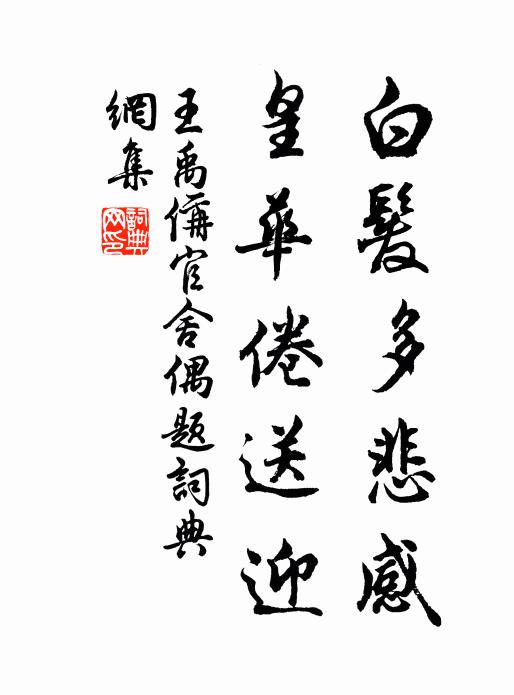 白髮多悲感
皇華倦送迎
王禹偁官舍偶題詞典
網集
詞典網印